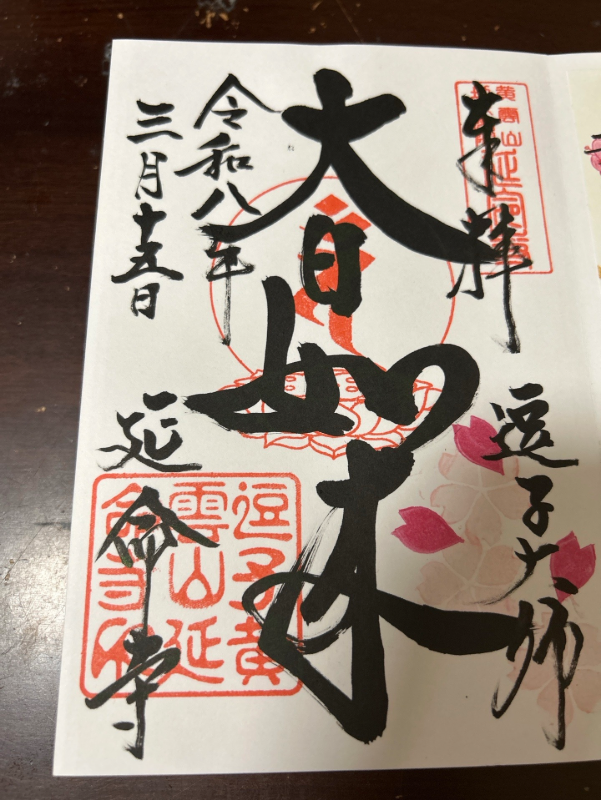 奉拝
逗子大師
大日如来
令和八年
三月十五日
延命寺
逗子黄
雲山延
命寺印